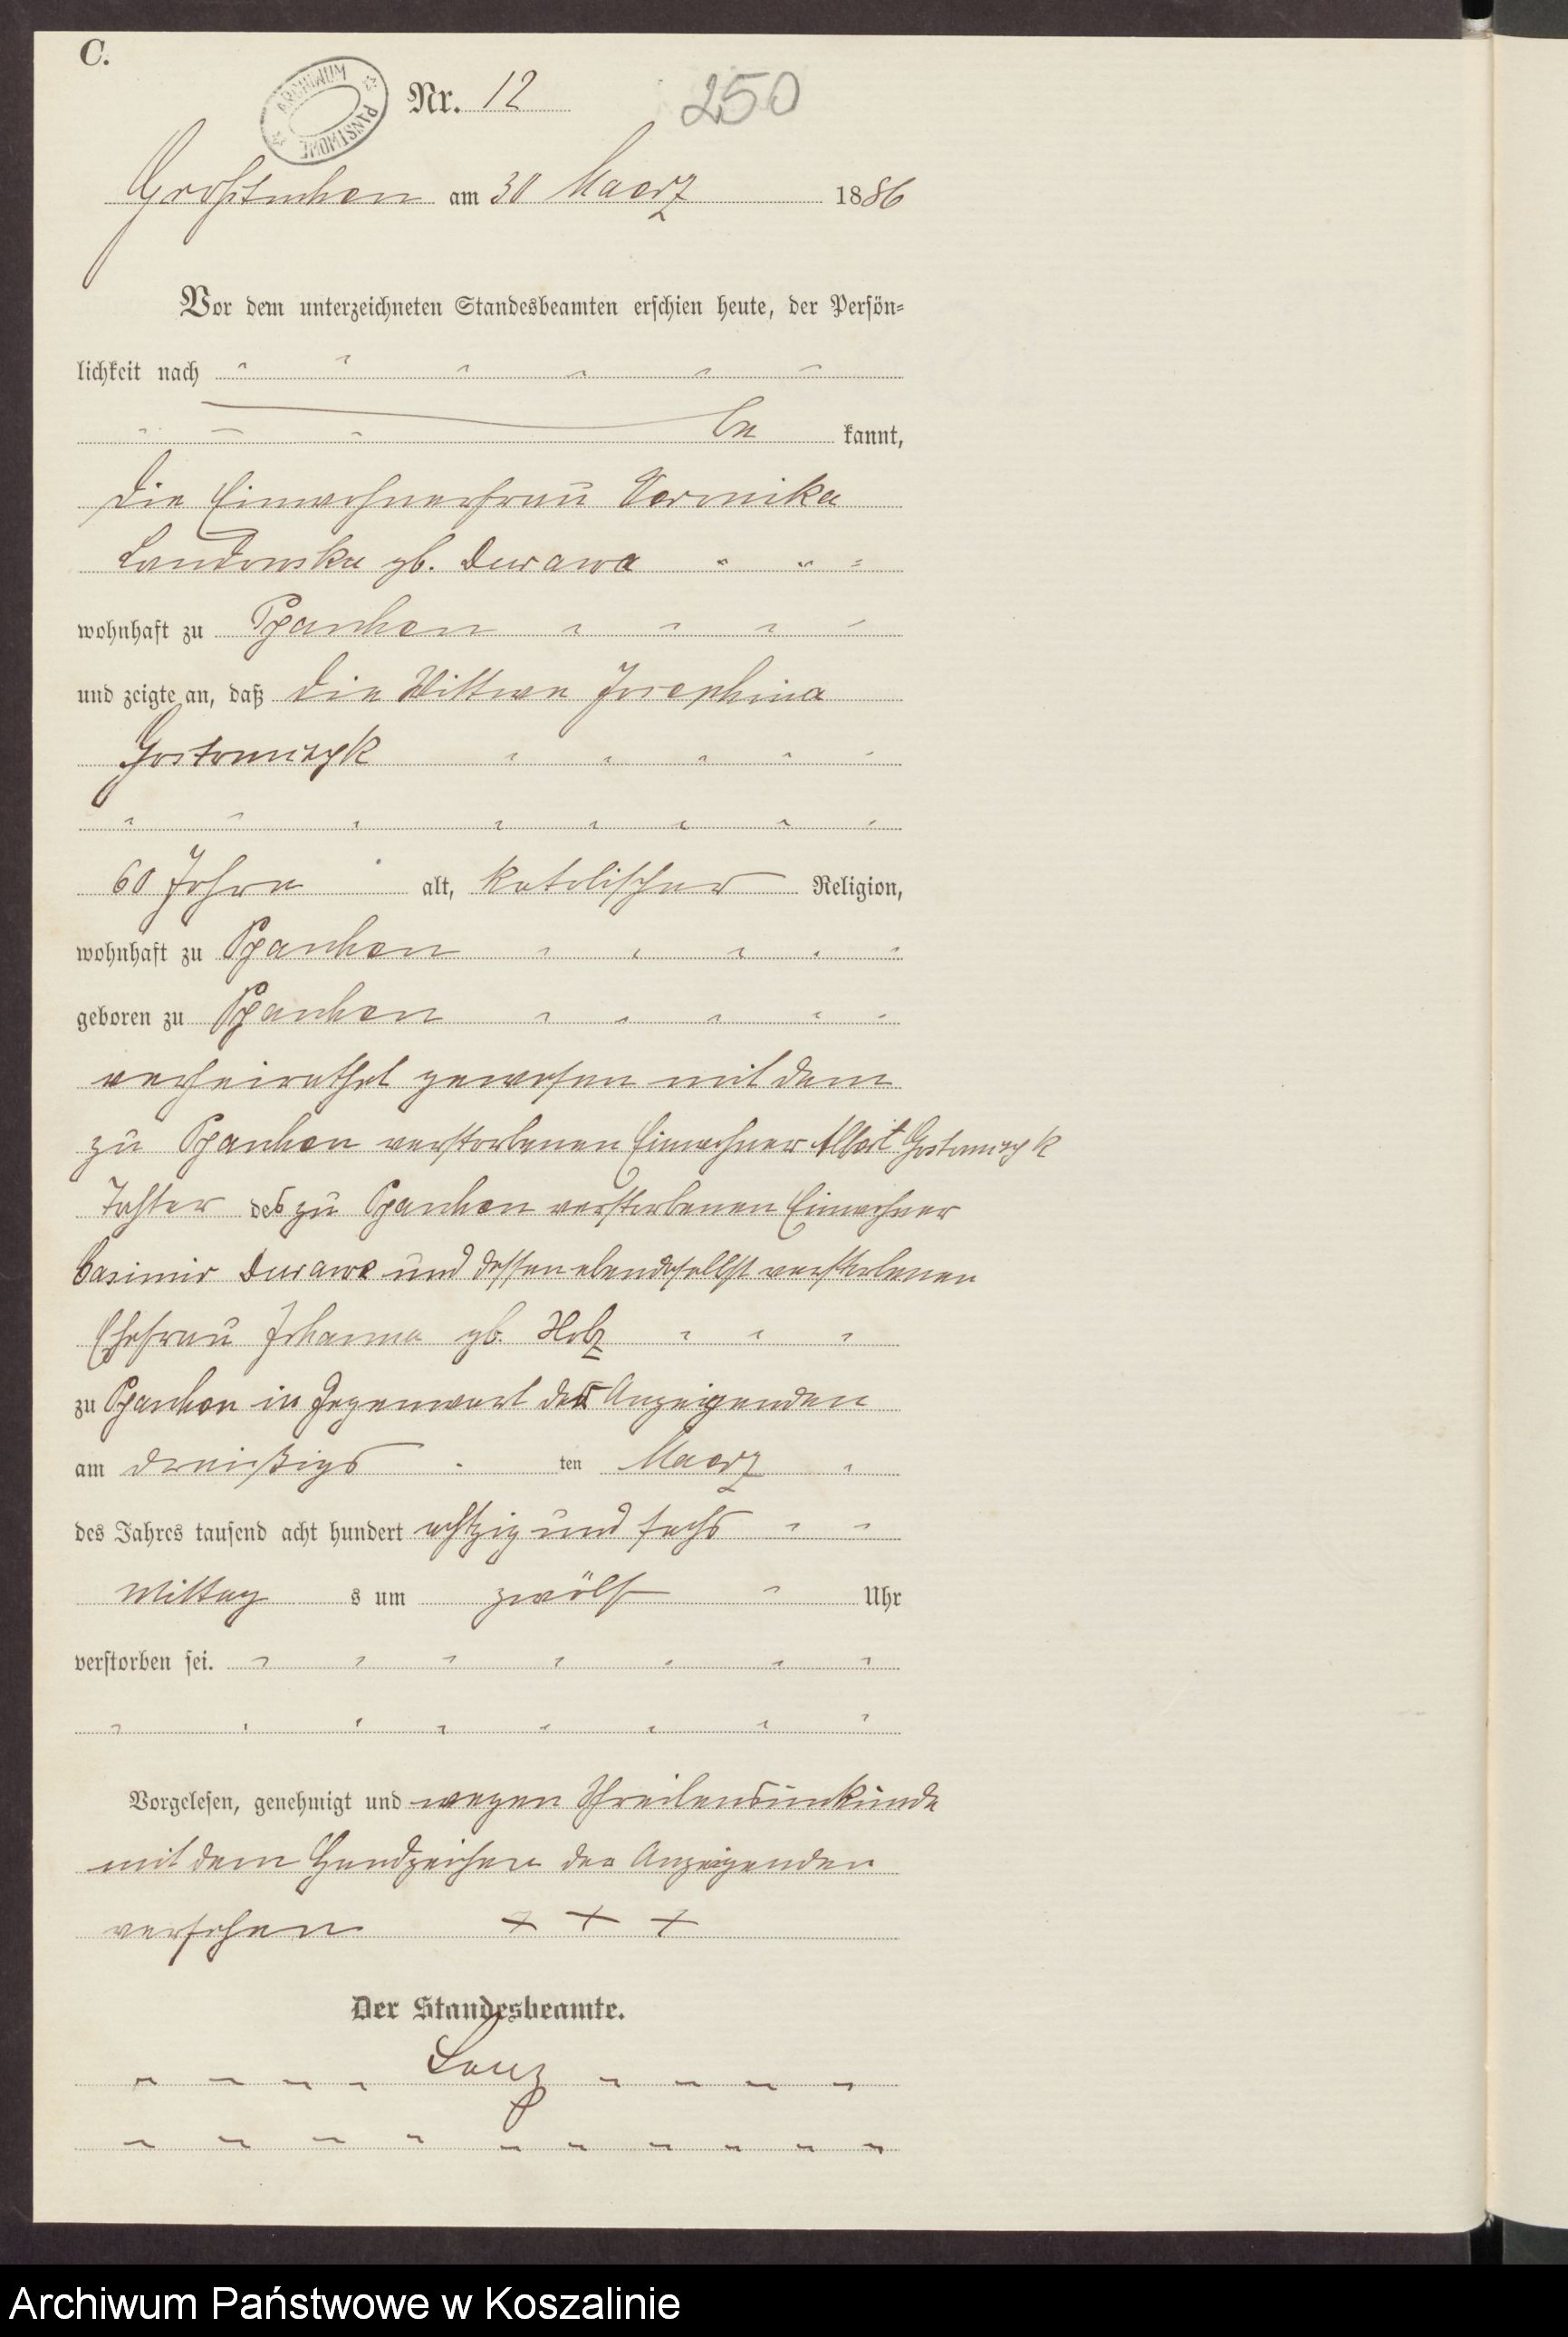 C.
ARCHIWUM PAŃSTWOWE
Nr. 12 250
Großtuchen am 30 Maerz 1886
Vor dem unterzeichneten Standesbeamten erschien heute, der Persön-
lichkeit nach
be kannt,
die Einwohnerfrau Veronika
gb. Durawa
wohnhaft zu
und zeigte an, daß die Wittwe Josephina
Gostomczyk
60 Jahre alt, katolischer Religion,
wohnhaft zu
geboren zu
verheirathet gewesen mit dem
zu verstorbenen Einwohner Albert Gostomczyk
Tochter des zu verstorbenen Einwohner
Casimir Durawa und dessen ebendaselbst verstorbenen
Ehefrau Johanna gb. Holz
zu in Gegenwart der Anzeigenden
am dreißigs ten Maerz
des Jahres tausend acht hundert achtzig und sechs
Mittag s um zwölf Uhr
verstorben sei.
Vorgelesen, genehmigt und wegen Schreibensunkunde
mit dem Handzeichen der Anzeigenden
versehen + + +
Der Standesbeamte.
Archiwum Państwowe w Koszalinie